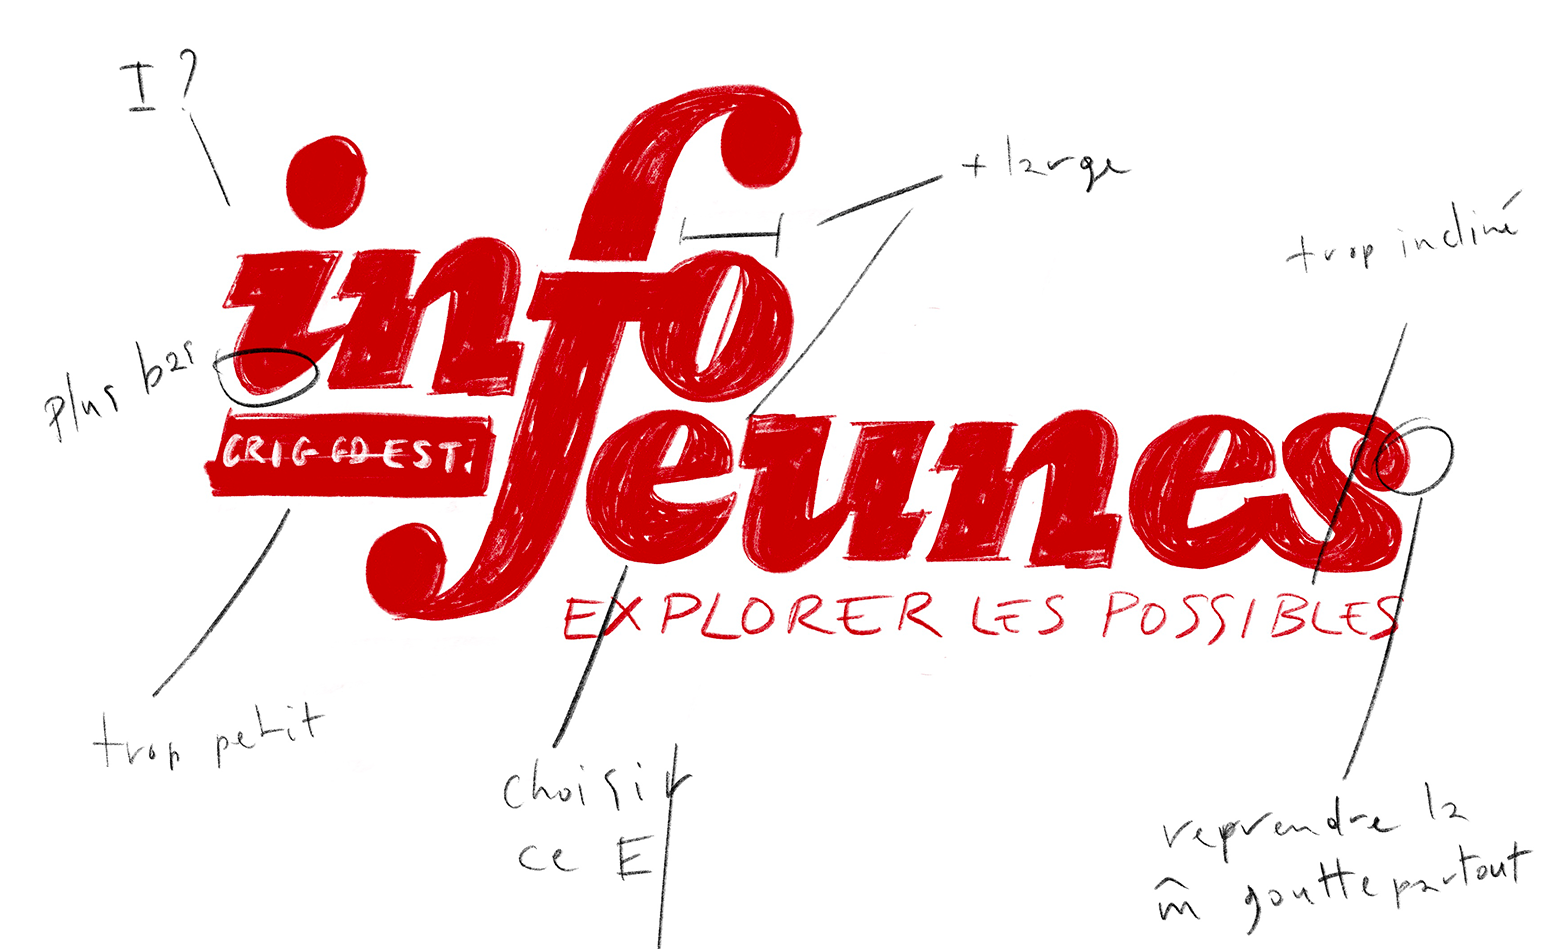 I ?
+ large
trop incliné
info
plus bas
CRIG GDEST.
jeunes
EXPLORER LES POSSIBLES
trop petit
choisir
ce E
reprendre la
m̂ goutte partout